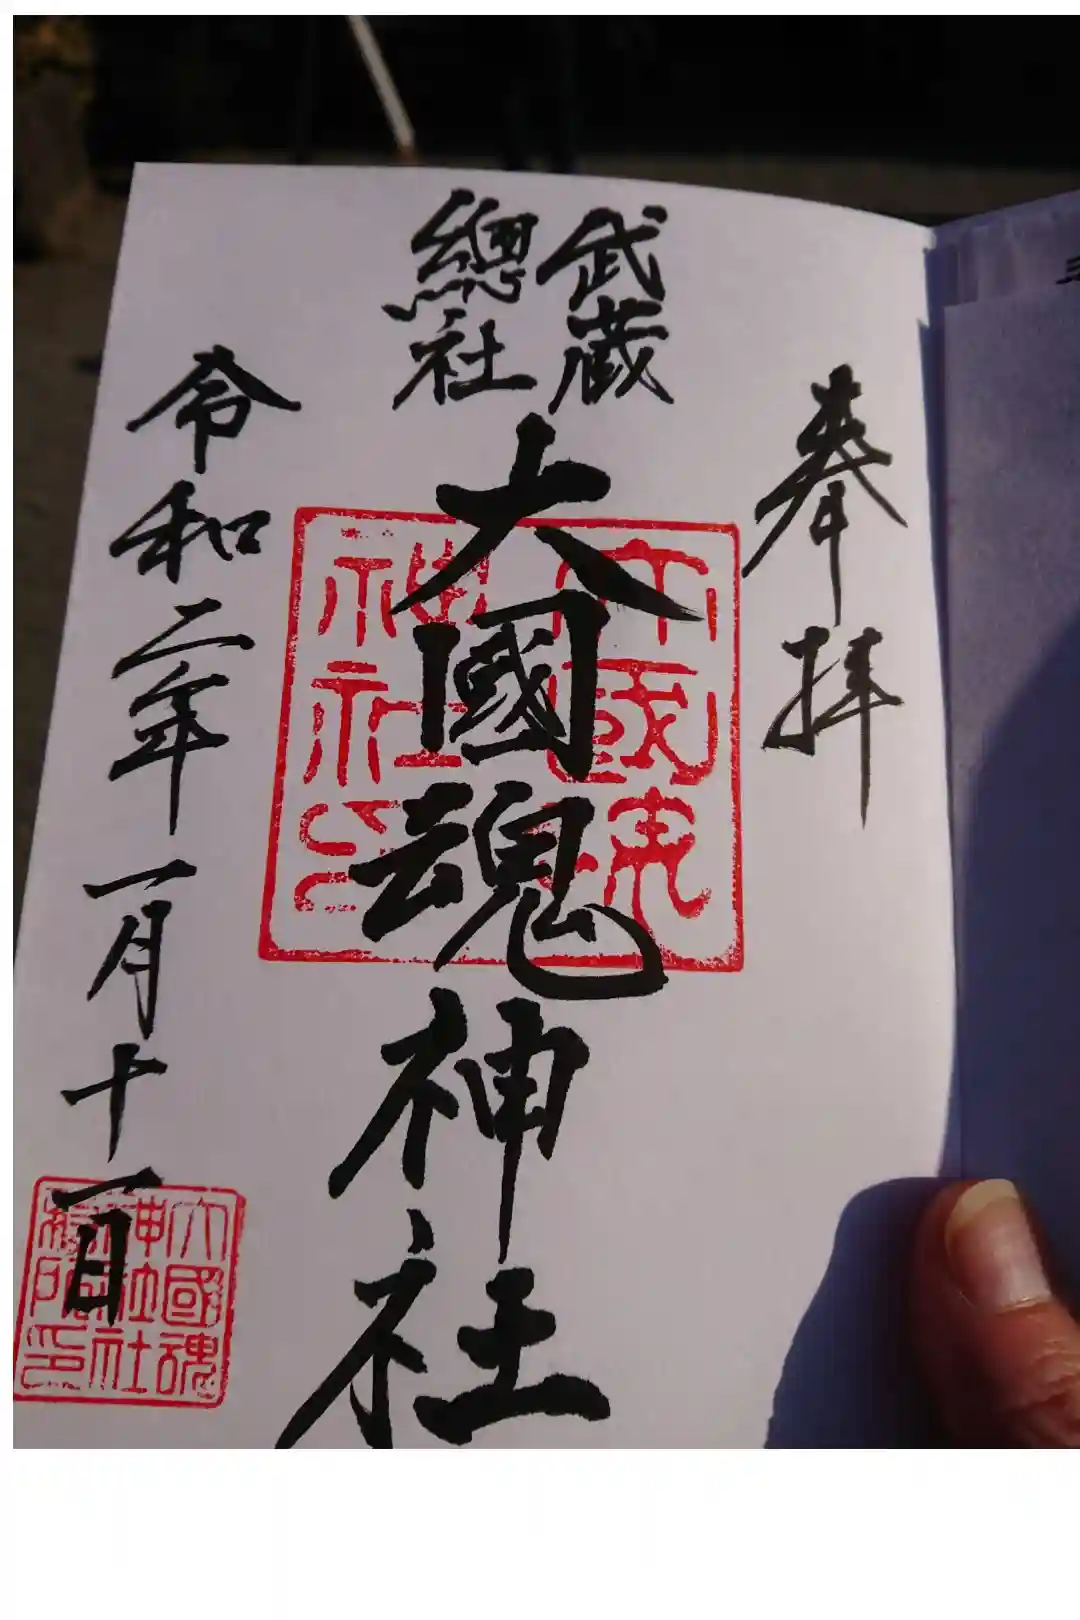 奉拝
武蔵
總社
大國魂神社
令和二年一月十一日
大國魂
神社印
大國魂
神社社
務所印